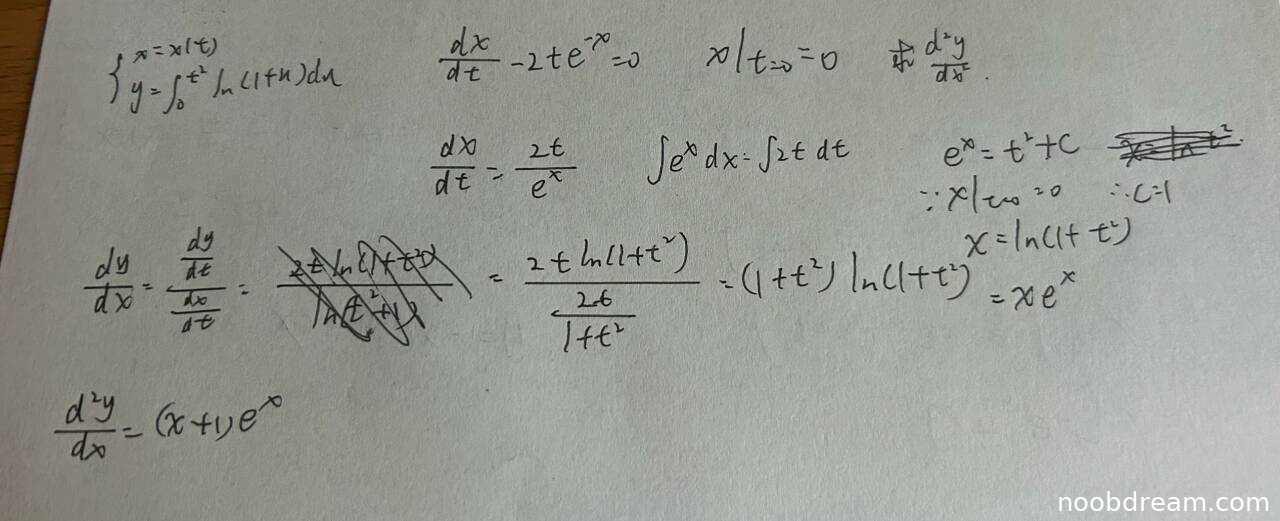 { x=x(t) dx/dt -2te^{-x}=0 x|_{t=0}=0 求 d²y/dx².
y=∫_0^{t²} ln(1+u)du
dx/dt = 2t/e^x ∫e^x dx=∫2t dt e^x=t²+C
∵x|_{t=0}=0 ∴C=1
x=ln(1+t²)
dy/dx = (dy/dt)/(dx/dt) = = 2t ln(1+t²)/(2t/(1+t²)) =(1+t²) ln(1+t²) =xe^x
d²y/dx = (x+1)e^x
noobdream.com